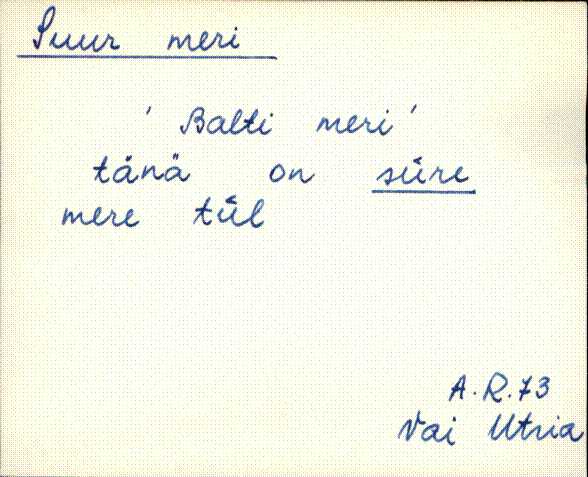 Suur meri
'Balti meri'
tänä on sūre
mere tūl
A.R.73
Vai Utria